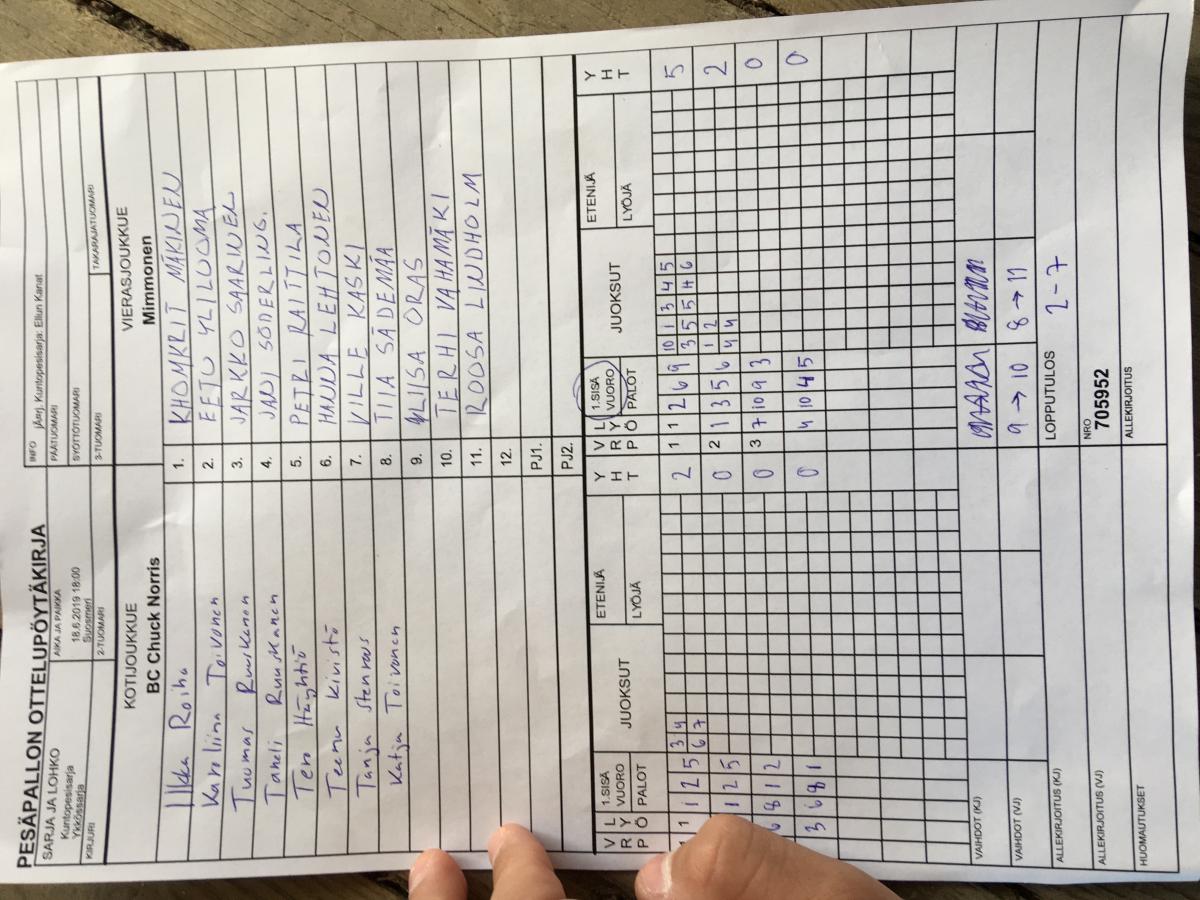 PESÄPALLON OTTELUPÖYTÄKIRJA
SARJA JA LOHKO
Kuntopesisarja
Ykkössarja
AIKA JA PAIKKA
18.6.2019 18:00
Suosmeri
INFO (Järj. Kuntopesisarja: Ellun Kanat
PÄÄTUOMARI
SYÖTTÖTUOMARI
KIRJURI
2-TUOMARI
3-TUOMARI
TAKARAJATUOMARI
KOTIJOUKKUE
BC Chuck Norris
VIERASJOUKKUE
Mimmonen
Ilkka Roiha 1. KHOMKRIT MÄKINEN
Karoliina Toivonen 2. EETU YLILUOMA
Tuomas Ruuskanen 3. JARKKO SAARINEN
Taneli Ruuskanen 4. JANI SÖDERLING.
Tero Häyhtiö 5. PETRI RAITTILA
Teemu Kivistö 6. HANNA LEHTONEN
Tanja Stenroos 7. VILLE KASKI
Katja Toivonen 8. TIIA SÄDEMÄA
9. LIISA ORAS
10. TERHI VÄHÄMÄKI
11. ROOSA LINDHOLM
12.
PJ1.
PJ2.
V R P L Y Ö 1.SISÄ VUORO PALOT JUOKSUT ETENIJÄ LYÖJÄ Y H T V R P L Y Ö 1.SISÄ VUORO PALOT JUOKSUT ETENIJÄ LYÖJÄ Y H T
1 1 2 5 3 4 2 1 1 2 6 9 10 1 3 4 5 5
6 7 3 5 5 4 6
1 2 5 0 2 1 3 5 6 1 2 2
4 4
6 8 1 2 0 3 7 10 9 3 0
3 6 8 1 0 4 10 4 5 0
VAIHDOT (KJ)
VAIHDOT (VJ) 9 → 10 8 → 11
ALLEKIRJOITUS (KJ) LOPPUTULOS 2 - 7
ALLEKIRJOITUS (VJ) NRO
705952
HUOMAUTUKSET ALLEKIRJOITUS